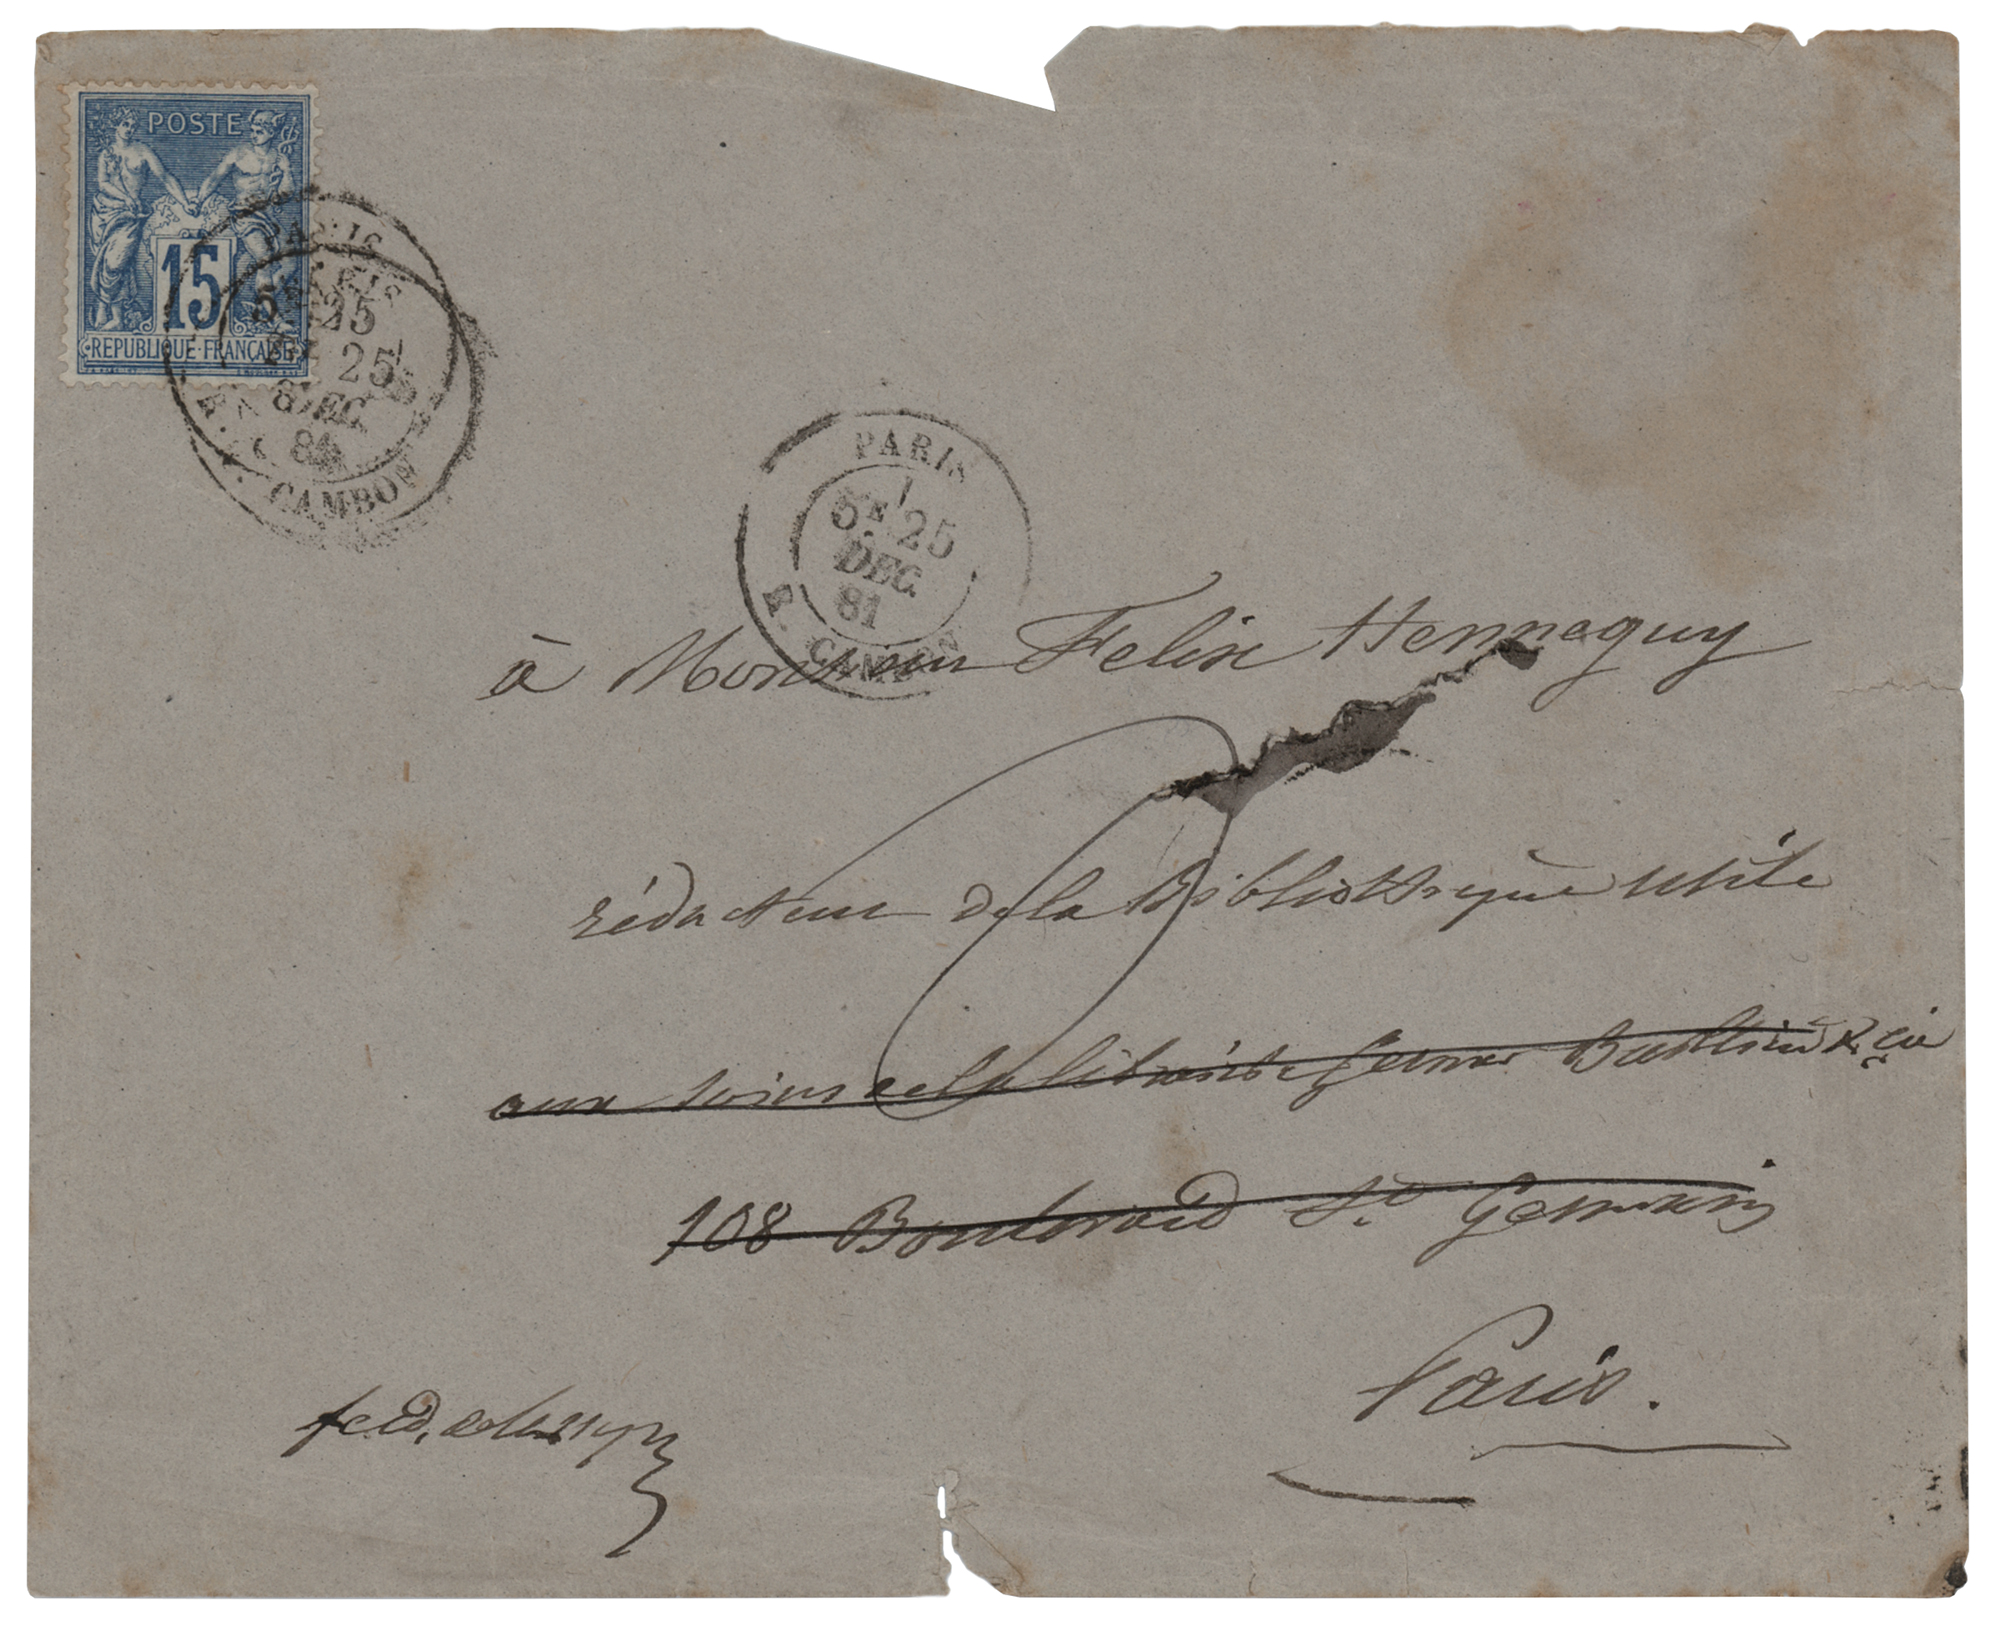 POSTE
15
REPUBLIQUE FRANÇAISE
PARIS
5E 25
DEC.
81
R. CAMBON
PARIS
5E 25
DEC.
81
R. CAMBON
à Monsieur Felix Hennequy
rédacteur de la Bibliothèque utile
aux soins de la librairie Germer Baillière & Cie
108 Boulevard St Germain
Paris.
ferd. de Lesseps